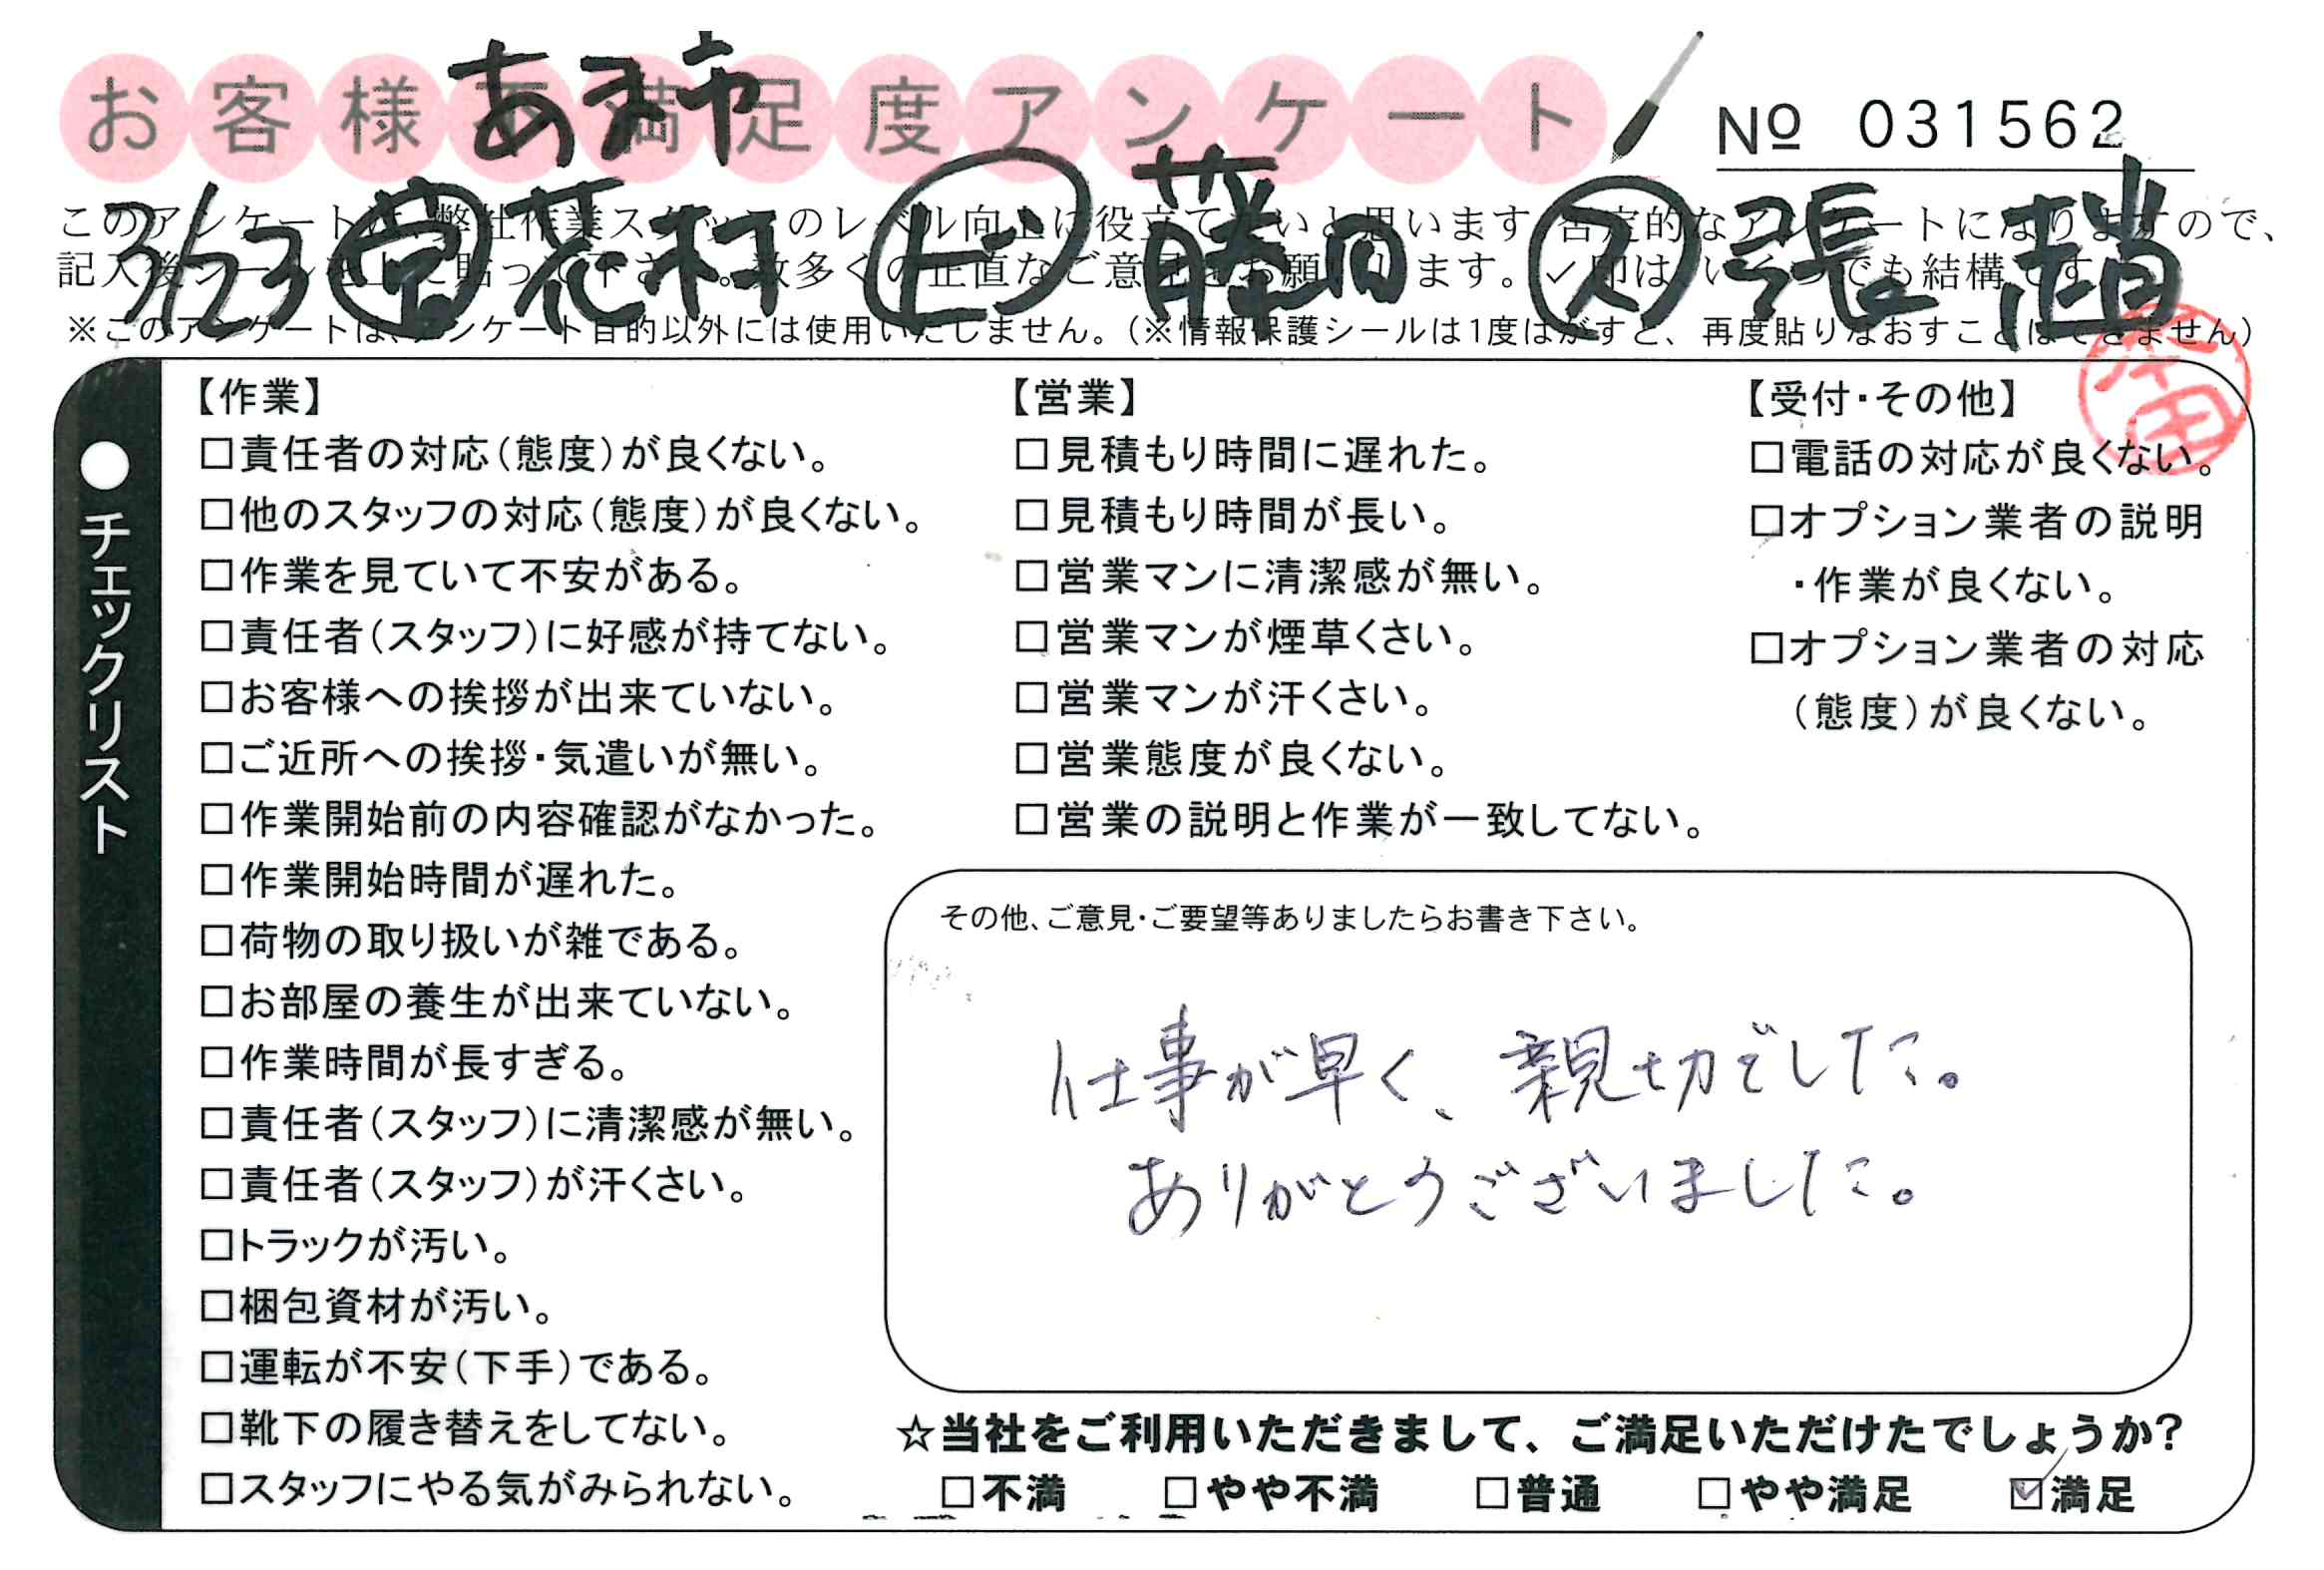 お客様不満足度アンケート
あま市
No 031562
3/23 営 花村 ヒ 藤田 ス 張 趙
このアンケートは、弊社作業スタッフのレベル向上に役立てたいと思います。否定的なアンケートになりますので、
記入後シールを上に貼って下さい。数多くの正直なご意見をお願いします。✓印はいくつでも結構です。
※このアンケートは、アンケート目的以外には使用いたしません。(※情報保護シールは1度はがすと、再度貼りなおすことはできません)
●チェックリスト
【作業】
□責任者の対応(態度)が良くない。
□他のスタッフの対応(態度)が良くない。
□作業を見ていて不安がある。
□責任者(スタッフ)に好感が持てない。
□お客様への挨拶が出来ていない。
□ご近所への挨拶・気遣いが無い。
□作業開始前の内容確認がなかった。
□作業開始時間が遅れた。
□荷物の取り扱いが雑である。
□お部屋の養生が出来ていない。
□作業時間が長すぎる。
□責任者(スタッフ)に清潔感が無い。
□責任者(スタッフ)が汗くさい。
□トラックが汚い。
□梱包資材が汚い。
□運転が不安(下手)である。
□靴下の履き替えをしてない。
□スタッフにやる気がみられない。
【営業】
□見積もり時間に遅れた。
□見積もり時間が長い。
□営業マンに清潔感が無い。
□営業マンが煙草くさい。
□営業マンが汗くさい。
□営業態度が良くない。
□営業の説明と作業が一致してない。
【受付・その他】
□電話の対応が良くない。
□オプション業者の説明
・作業が良くない。
□オプション業者の対応
(態度)が良くない。
その他、ご意見・ご要望等ありましたらお書き下さい。
仕事が早く、親切でした。
ありがとうございました。
☆当社をご利用いただきまして、ご満足いただけたでしょうか?
□不満 □やや不満 □普通 □やや満足 ☑満足